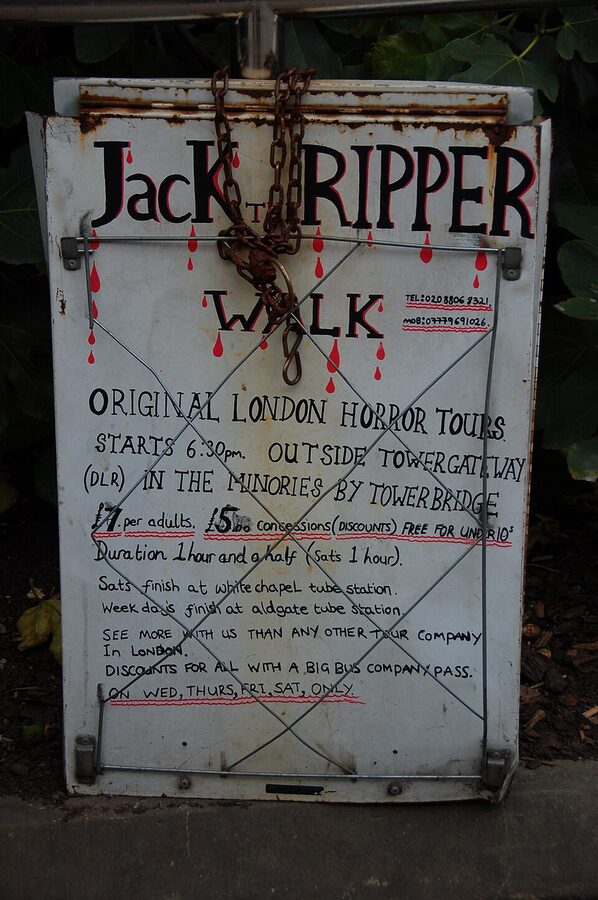 Jack THE RIPPER
WALK
TEL:020 8806 8321.
MOB:07779691026.
ORIGINAL LONDON HORROR TOURS.
STARTS 6:30pm. OUTSIDE TOWERGATEWAY
(DLR) IN THE MINORIES BY TOWERBRIDGE
£7. per adults, £5 concessions (DISCOUNTS) FREE FOR UNDER 10s
Duration 1 hour and a half (Sats 1 hour).
Sats finish at whitechapel tube station.
Weekdays finish at aldgate tube station.
SEE MORE WITH US THAN ANY OTHER TOUR COMPANY
In LONDON.
DISCOUNTS FOR ALL WITH A BIG BUS COMPANY PASS.
ON WED, THURS, FRI, SAT, ONLY.